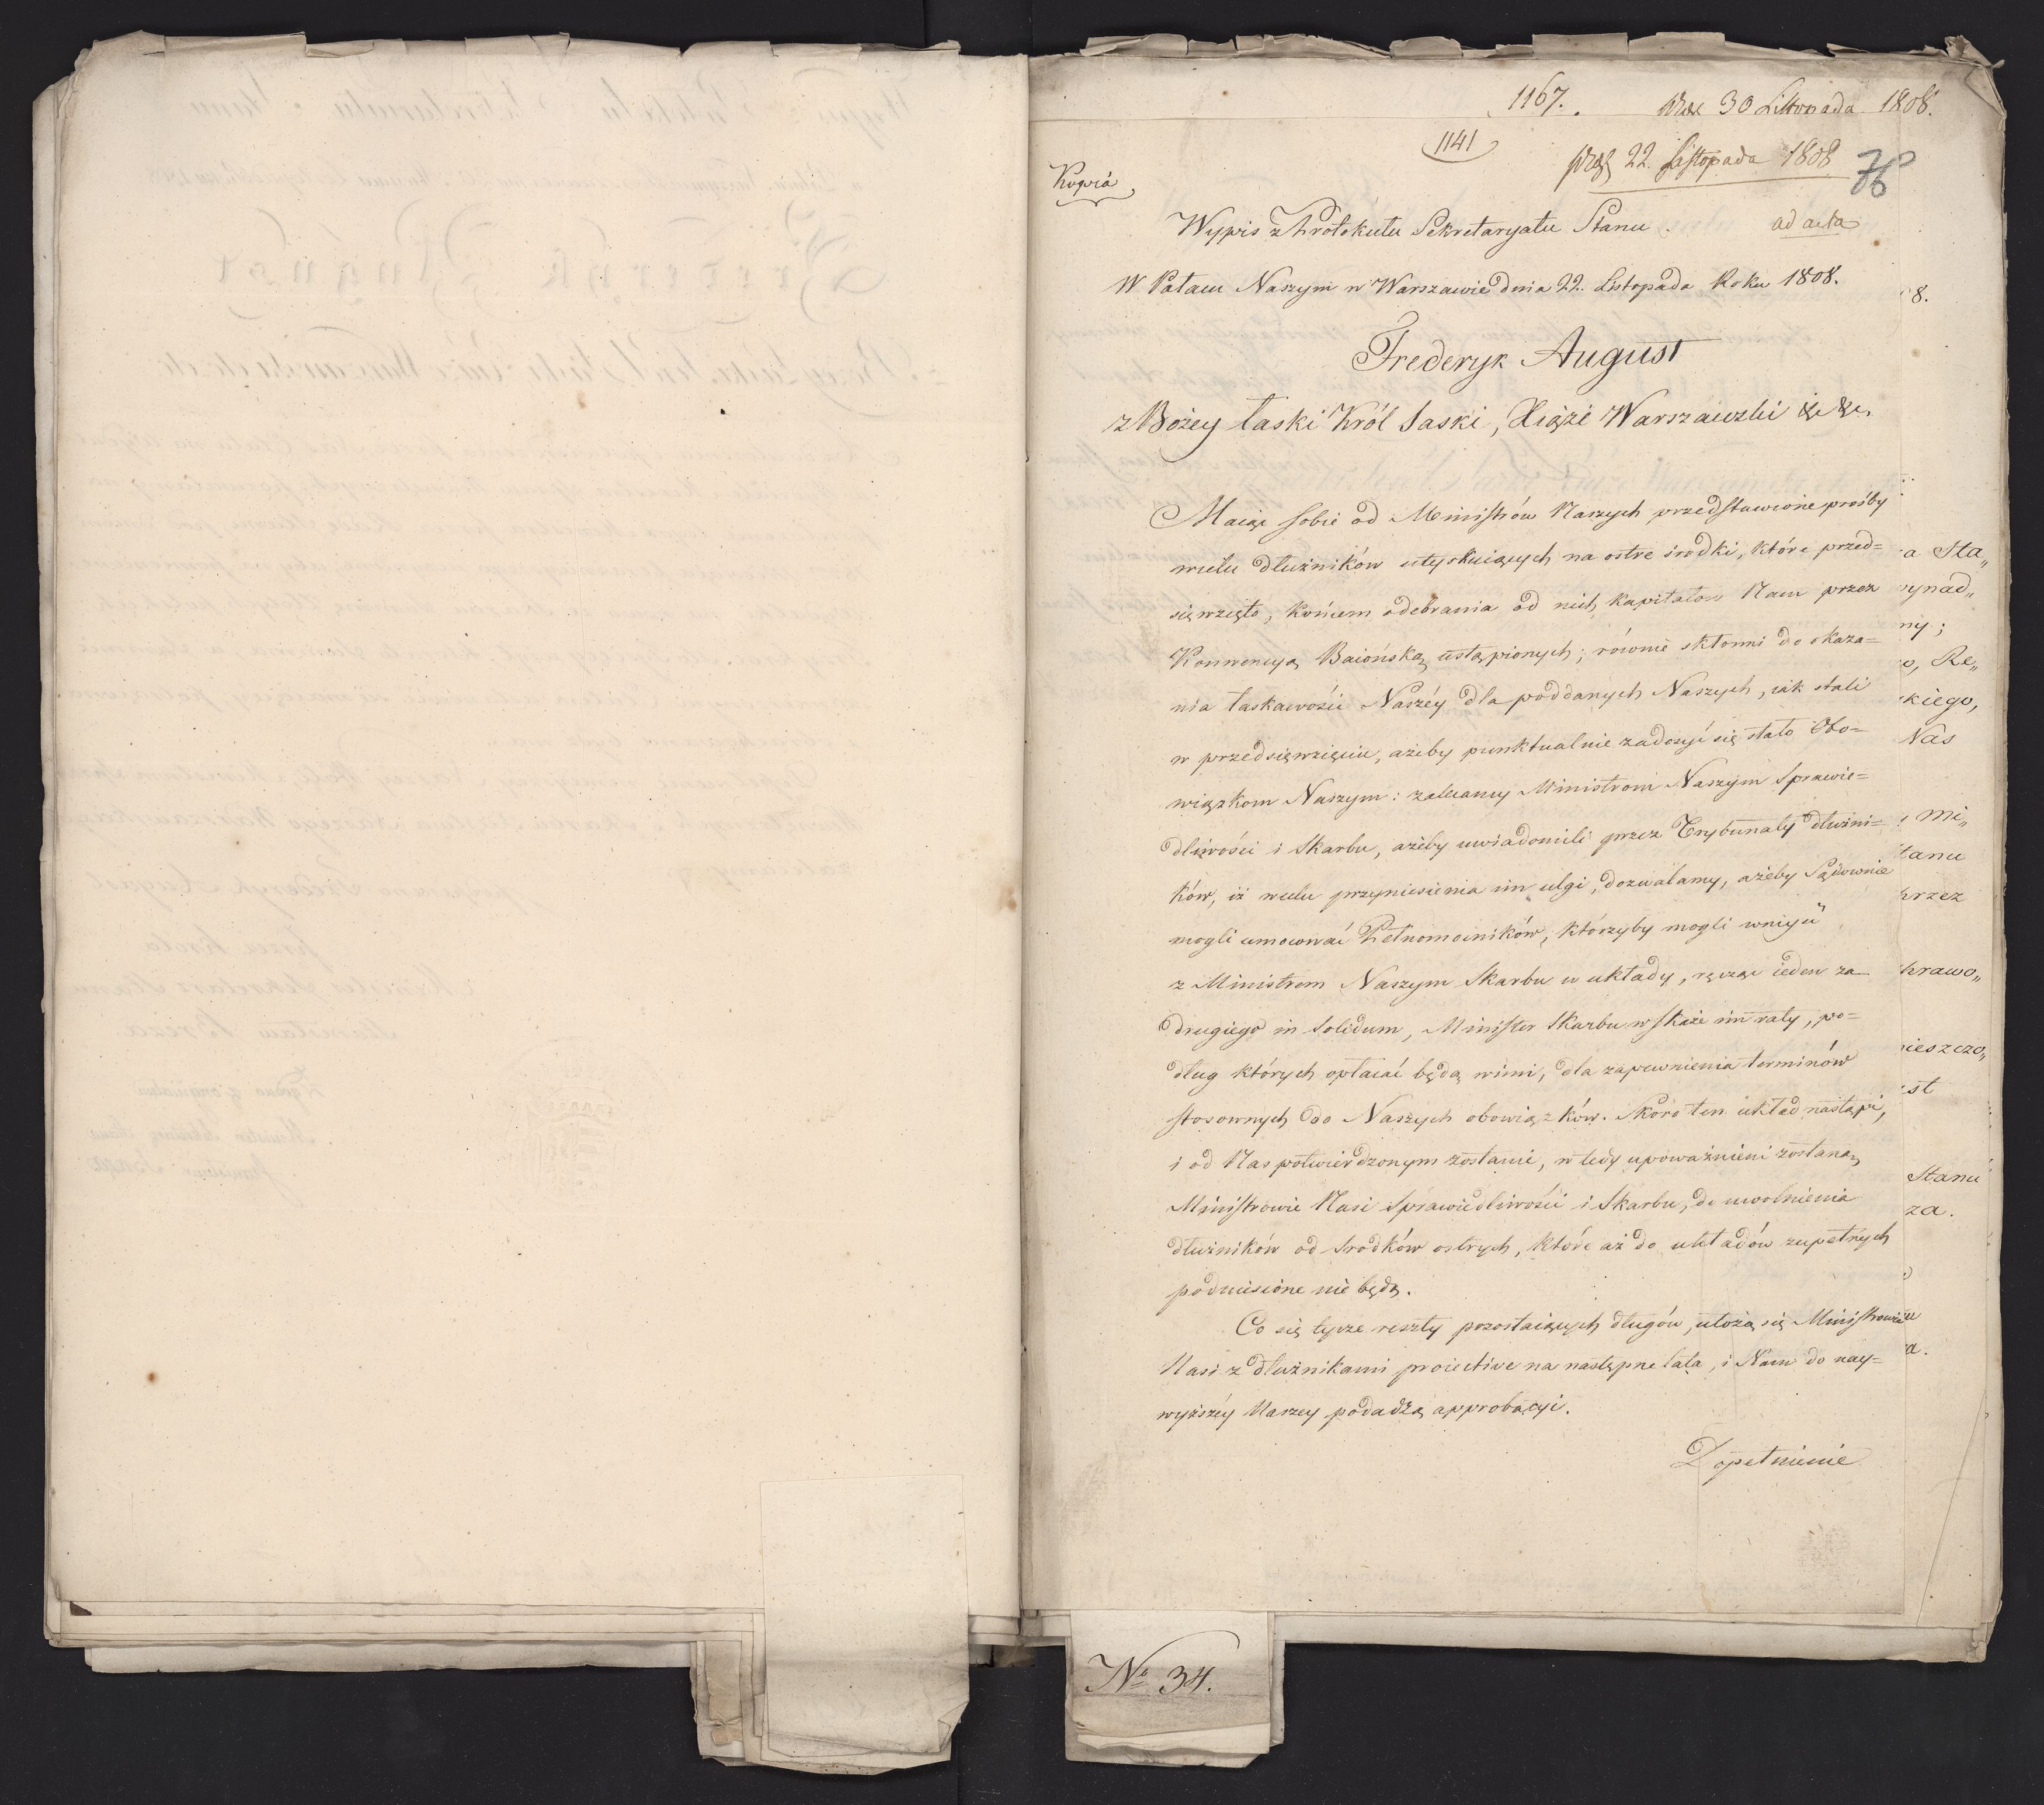 1167. 30 Listopada 1808.
1141
22. Listopada 1808 76
Kopia
Wypis z Protokułu Sekretaryatu Stanu. ad acta
W Pałacu Naszym w Warszawie dnia 22. Listopada Roku 1808.
Frederyk August
z Bożey łaski Król Saski, Xiąże Warszawski &c &c.
Maiąc sobie od Ministrów Naszych przedstawione prośby
wielu dłużników utyskuiących na ostre środki, które przed=
sięwzięto, końcem odebrania od nich kapitałow Nam przez
Konwencyą Baiońską ustąpionych; równie skłonni do okaza=
nia łaskawości Naszéy dla poddanych Naszych, iak stali
w przedsięwzięciu, ażeby punktualnie zadosyć się stało Obo=
wiązkom Naszym: zalecamy Ministrom Naszym Sprawie=
dliwości i Skarbu, ażeby uwiadomili przez Trybunały dłużni=
ków, iż w celu przyniesienia im ulgi, dozwalamy, ażeby Sądownie
mogli umocować Pełnomocników, którzyby mogli wniyść
z Ministrem Naszym Skarbu w układy, ręcząc ieden za
drugiego in Solidum, Minister Skarbu wskaże im raty, po=
dług których opłacać będą winni, dla zapewnienia terminów
stosownych do Naszych obowiązków. Skoro ten układ nastąpi,
i od Nas potwierdzonym zostanie, w tedy upoważnieni zostaną
Ministrowie Nasi Sprawiedliwości i Skarbu, do uwolnienia
dłużników od srodków ostrych, które aż do układów zupełnych
podniesione nie będą.
Co się tycze reszty pozostaiących długów, ułożą się Ministrowie
Nasi z dłużnikami proiective na następne lata, i Nam do nay=
wyższéy Naszey podadzą approbacyi.
Dopełnienie
8.
a Sta„
ynad„
ny;
o, Re„
kiego,
Nas
Mi„
tanu
przez
prawo„
ieszczo„
st
Stanu
za.
a.
No 34.